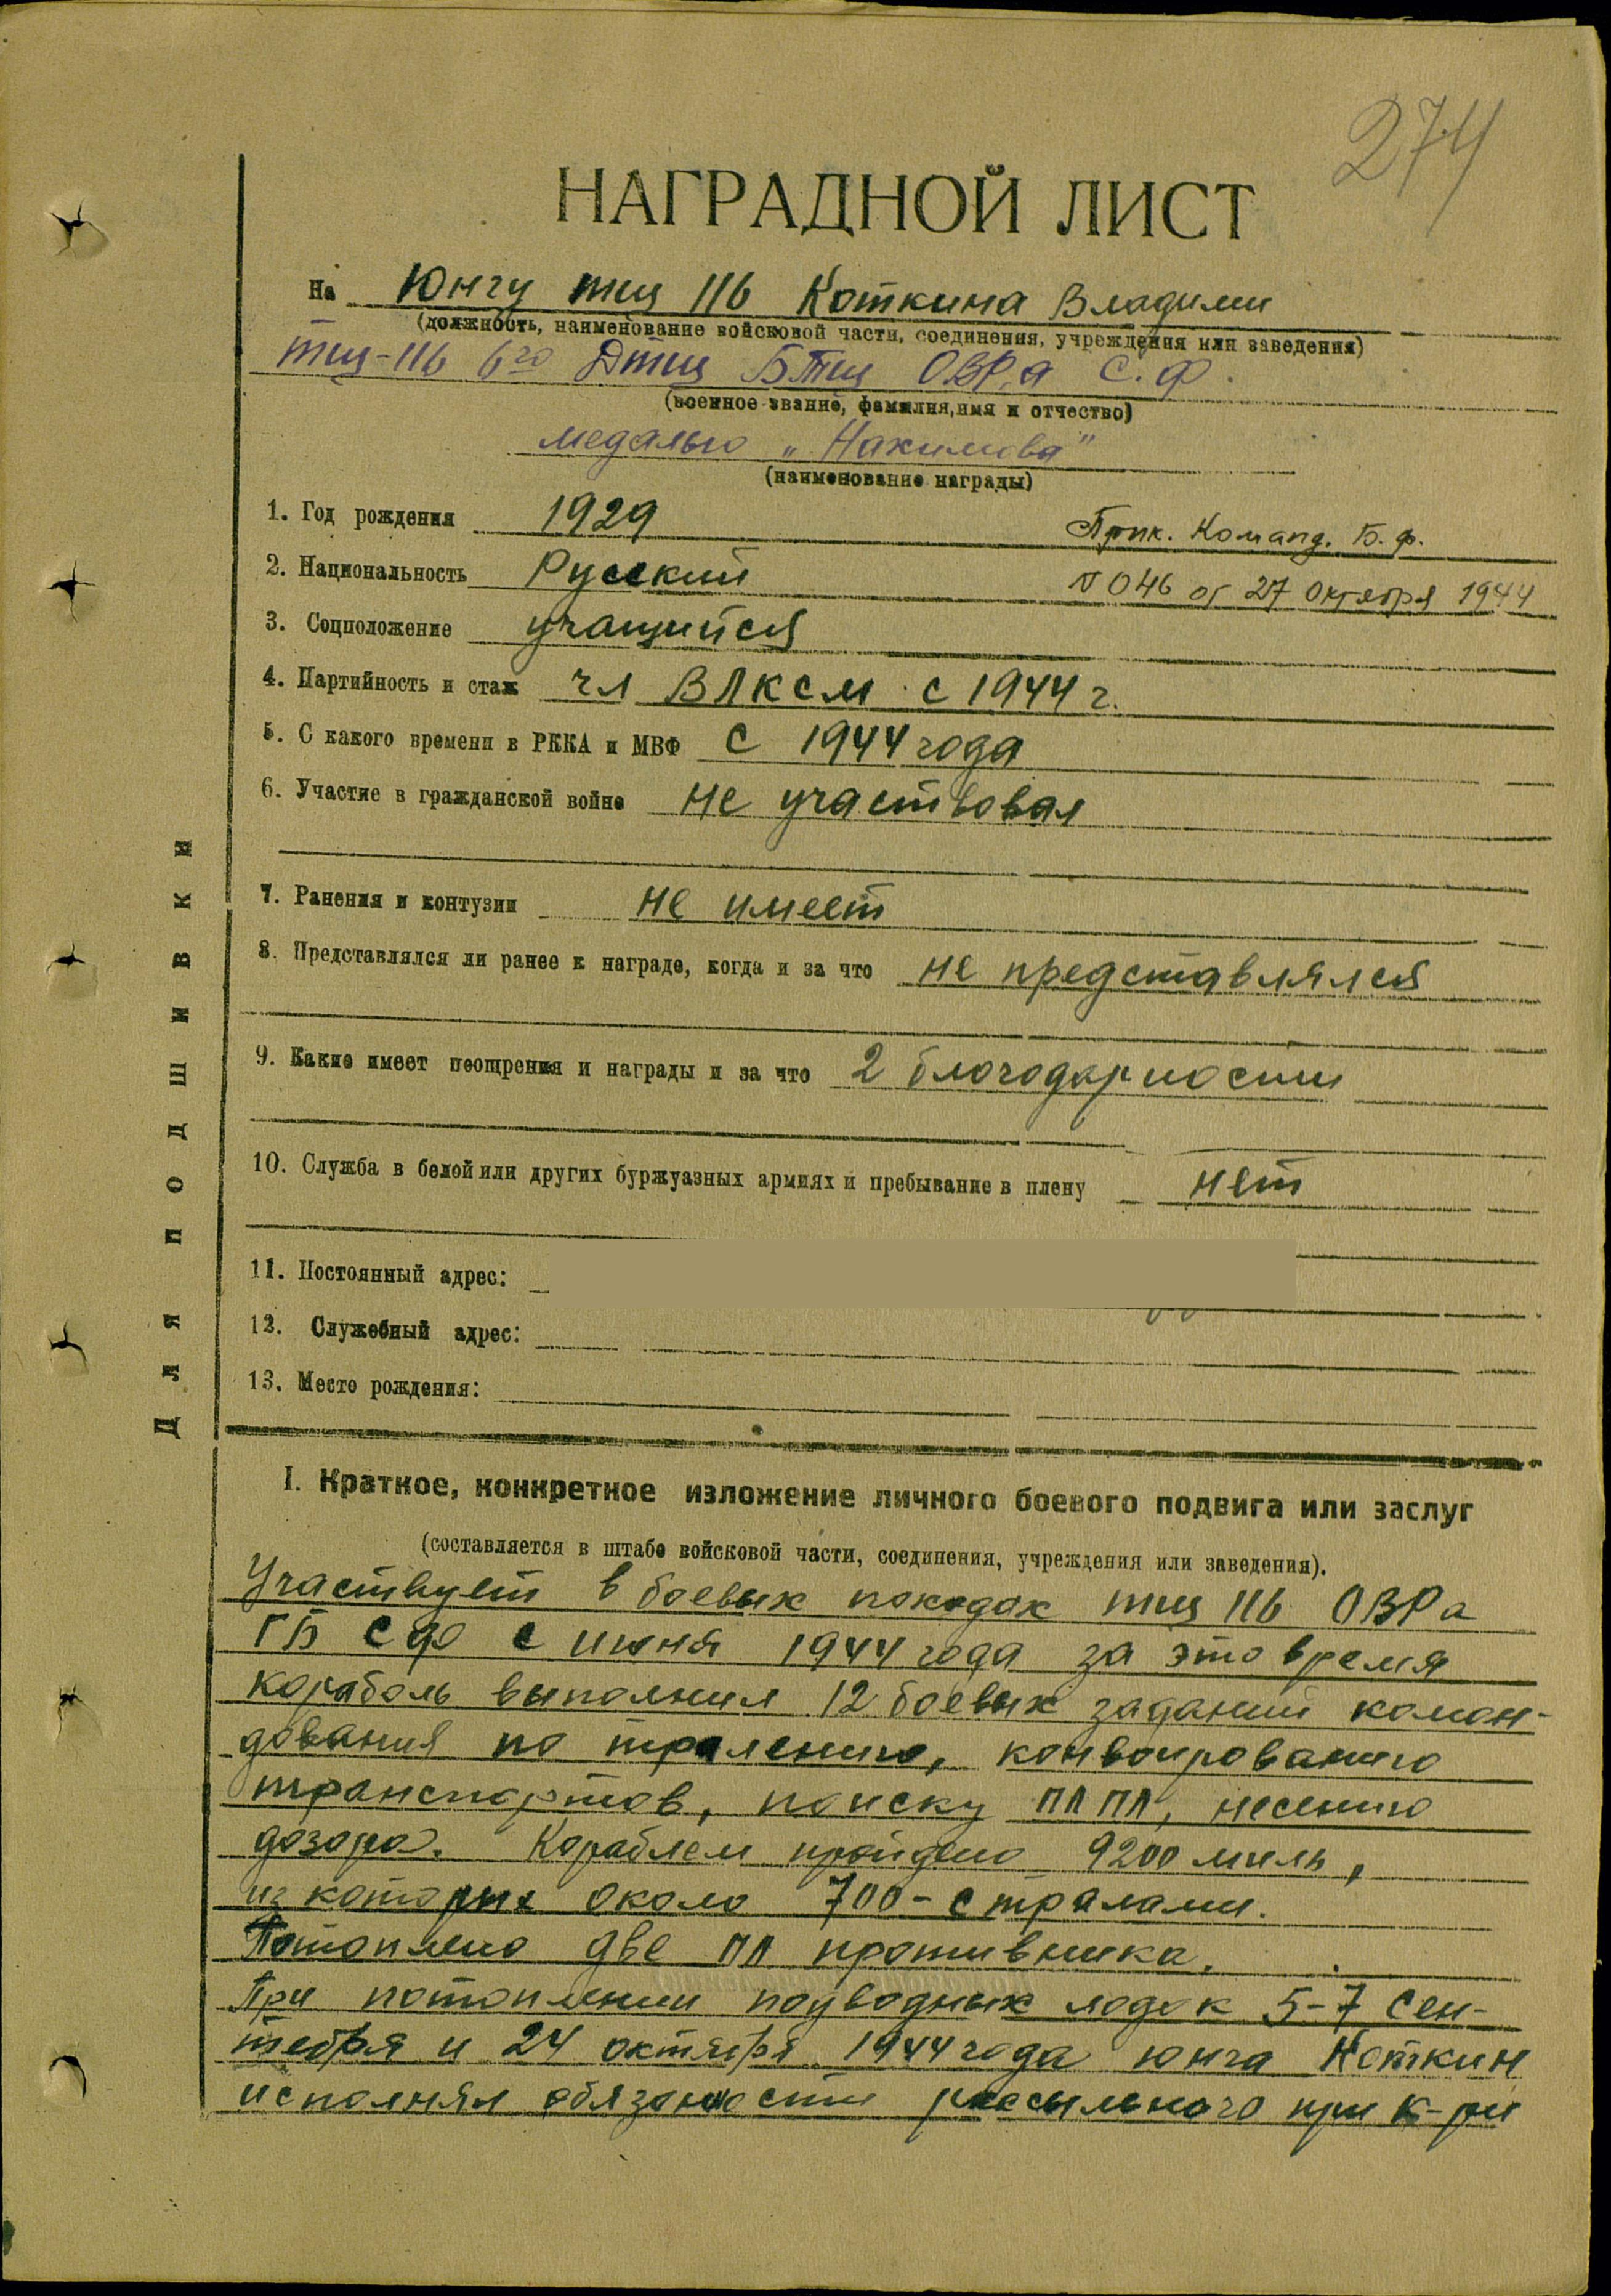 274
НАГРАДНОЙ ЛИСТ
На Юнгу тщ 116 Коткина Владими
(должность, наименование войсковой части, соединения, учреждения или заведения)
тщ-116 6го Дтщ БТщ ОВР,а С.Ф.
(военное звание, фамилия, имя и отчество)
медалью „Нахимова"
(наименование награды)
1. Год рождения 1929
Прик. Команд. Б.ф.
2. Национальность Русский
N 046 от 27 Октября 1944
3. Соцположение учащийся
4. Партийность и стаж чл ВЛКСМ с 1944 г.
5. С какого времени в РККА и МВФ с 1944 года
6. Участие в гражданской войне не участвовал
7. Ранения и контузии не имеет
8. Представлялся ли ранее к награде, когда и за что не представлялся
9. Какие имеет поощрения и награды и за что 2 благодарности
10. Служба в белой или других буржуазных армиях и пребывание в плену нет
11. Постоянный адрес:
12. Служебный адрес:
13. Место рождения:
Для подшивки
I. Краткое, конкретное изложение личного боевого подвига или заслуг
(составляется в штабе войсковой части, соединения, учреждения или заведения).
Участвует в боевых походах тщ 116 ОВРа
ГБ СФ с июня 1944 года за это время
корабль выполнил 12 боевых заданий коман-
дования по тралению, конвоированию
транспортов, поиску ПЛ ПЛ, несению
дозора. Кораблем пройдено 9200 миль,
из которых около 700 - с тралами.
Потоплено две ПЛ противника.
При потоплении подводных лодок 5-7 сен-
тября и 24 октября 1944 года юнга Коткин
исполнял обязанности рассыльного при к-ри